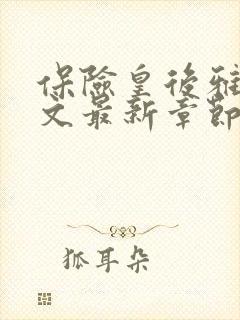 保險皇後雅
文最新章節
狐耳朵